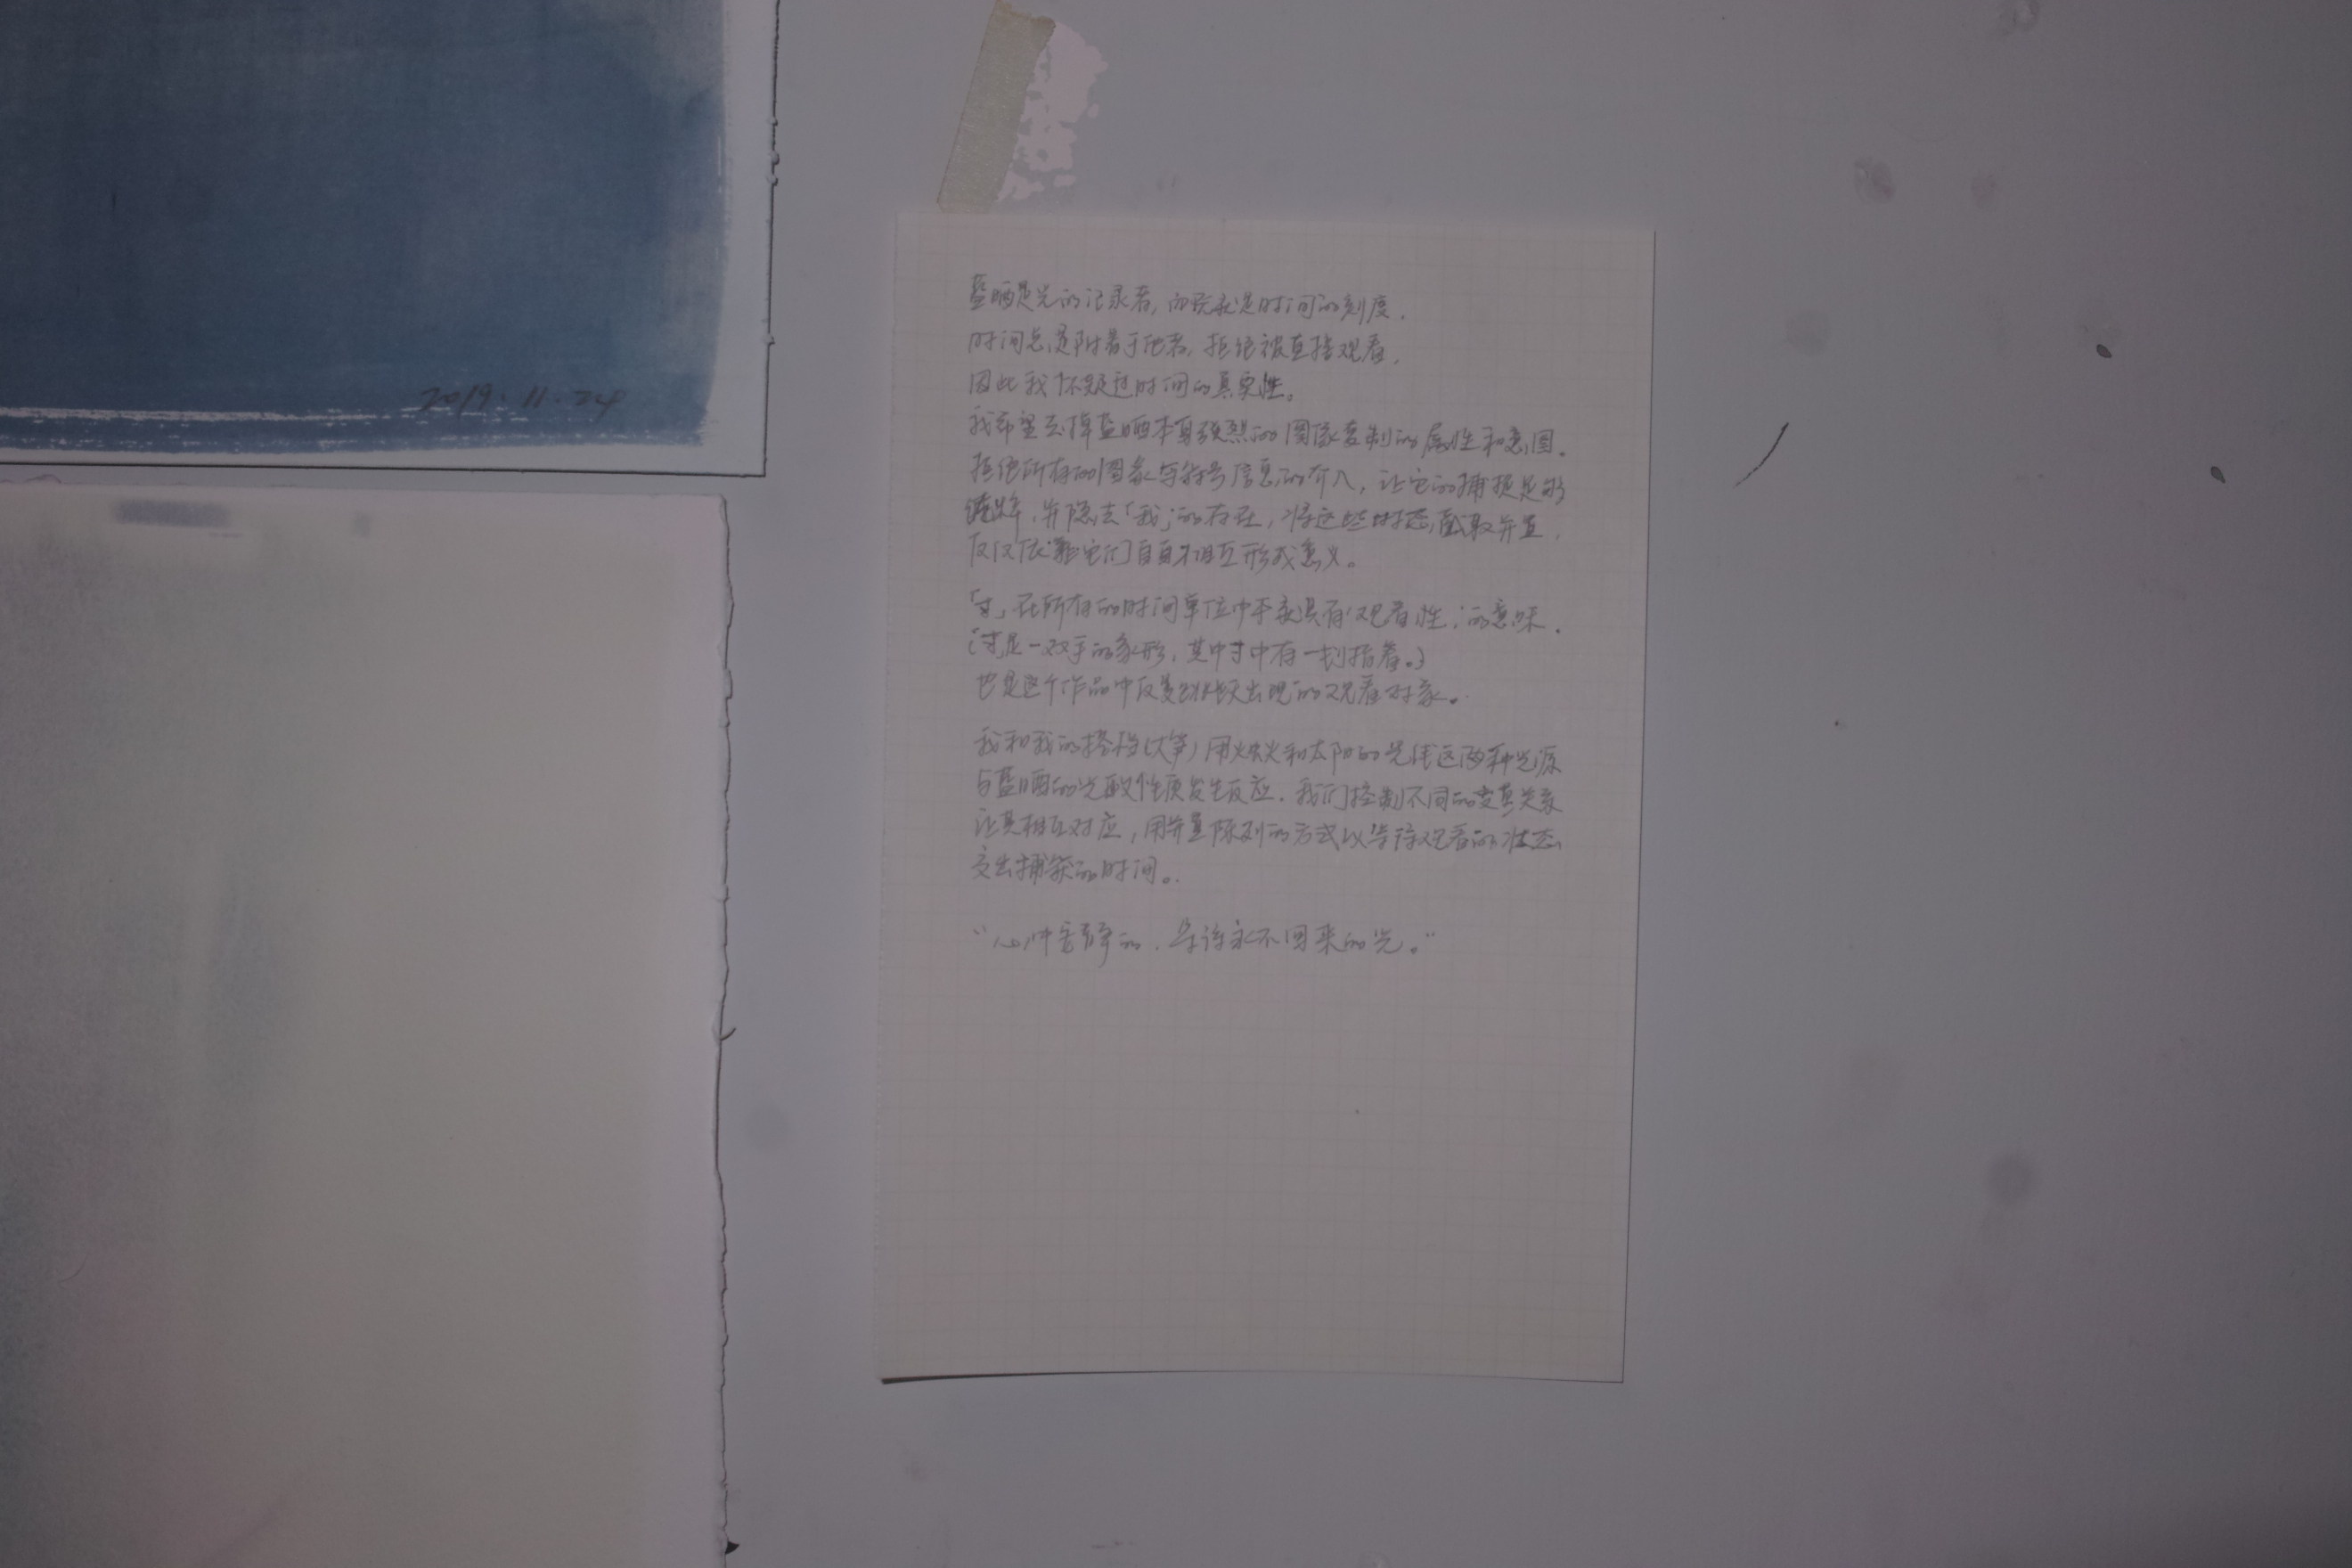 2019.11.24
蓝晒是光的记录者,而光就是时间的刻度.
时间总是附着于他者,拒绝被直接观看,
因此我怀疑过时间的真实性。
我希望去掉蓝晒本身强烈的图像复制的属性和意图.
拒绝所有的图象与符号信息的介入,让它的捕捉足够
纯粹,并隐去「我」的存在,将这些时态截取并置,
仅仅依靠它们自身相互形成意义。
「寸」在所有的时间单位中于我具有"观看性"的意味.
是一双手的象形,其中寸中有一划指着。)
也是这个作品中反复出现的观看对象。
我和我的搭档(大笋)用火焰和太阳的光线这两种光源
与蓝晒的光敏性质发生反应.我们控制不同的变量关系
让其相互对应,用并置陈列的方式以等待观看的状态
交出捕获的时间。
"心中寂静的,等待永不回来的光。"